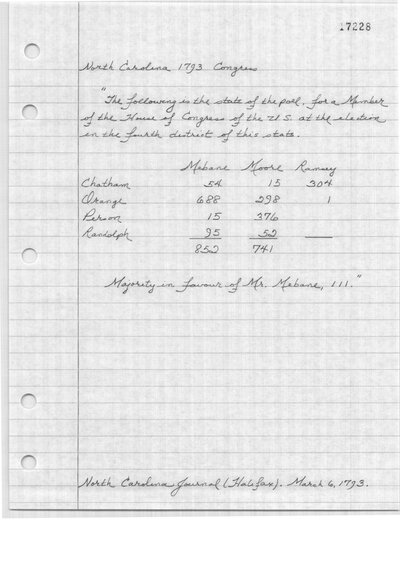 17228
North Carolina 1793 Congress
"The following is the state of the poll, for a Member
of the House of Congress of the U.S. at the election
in the fourth district of this state.
Mebane Moore Ramsey
Chatham 54 15 304
Orange 688 298 1
Person 15 376
Randolph 95 52
852 741
Majority in favour of Mr. Mebane, 111."
North Carolina Journal (Halifax). March 6, 1793.